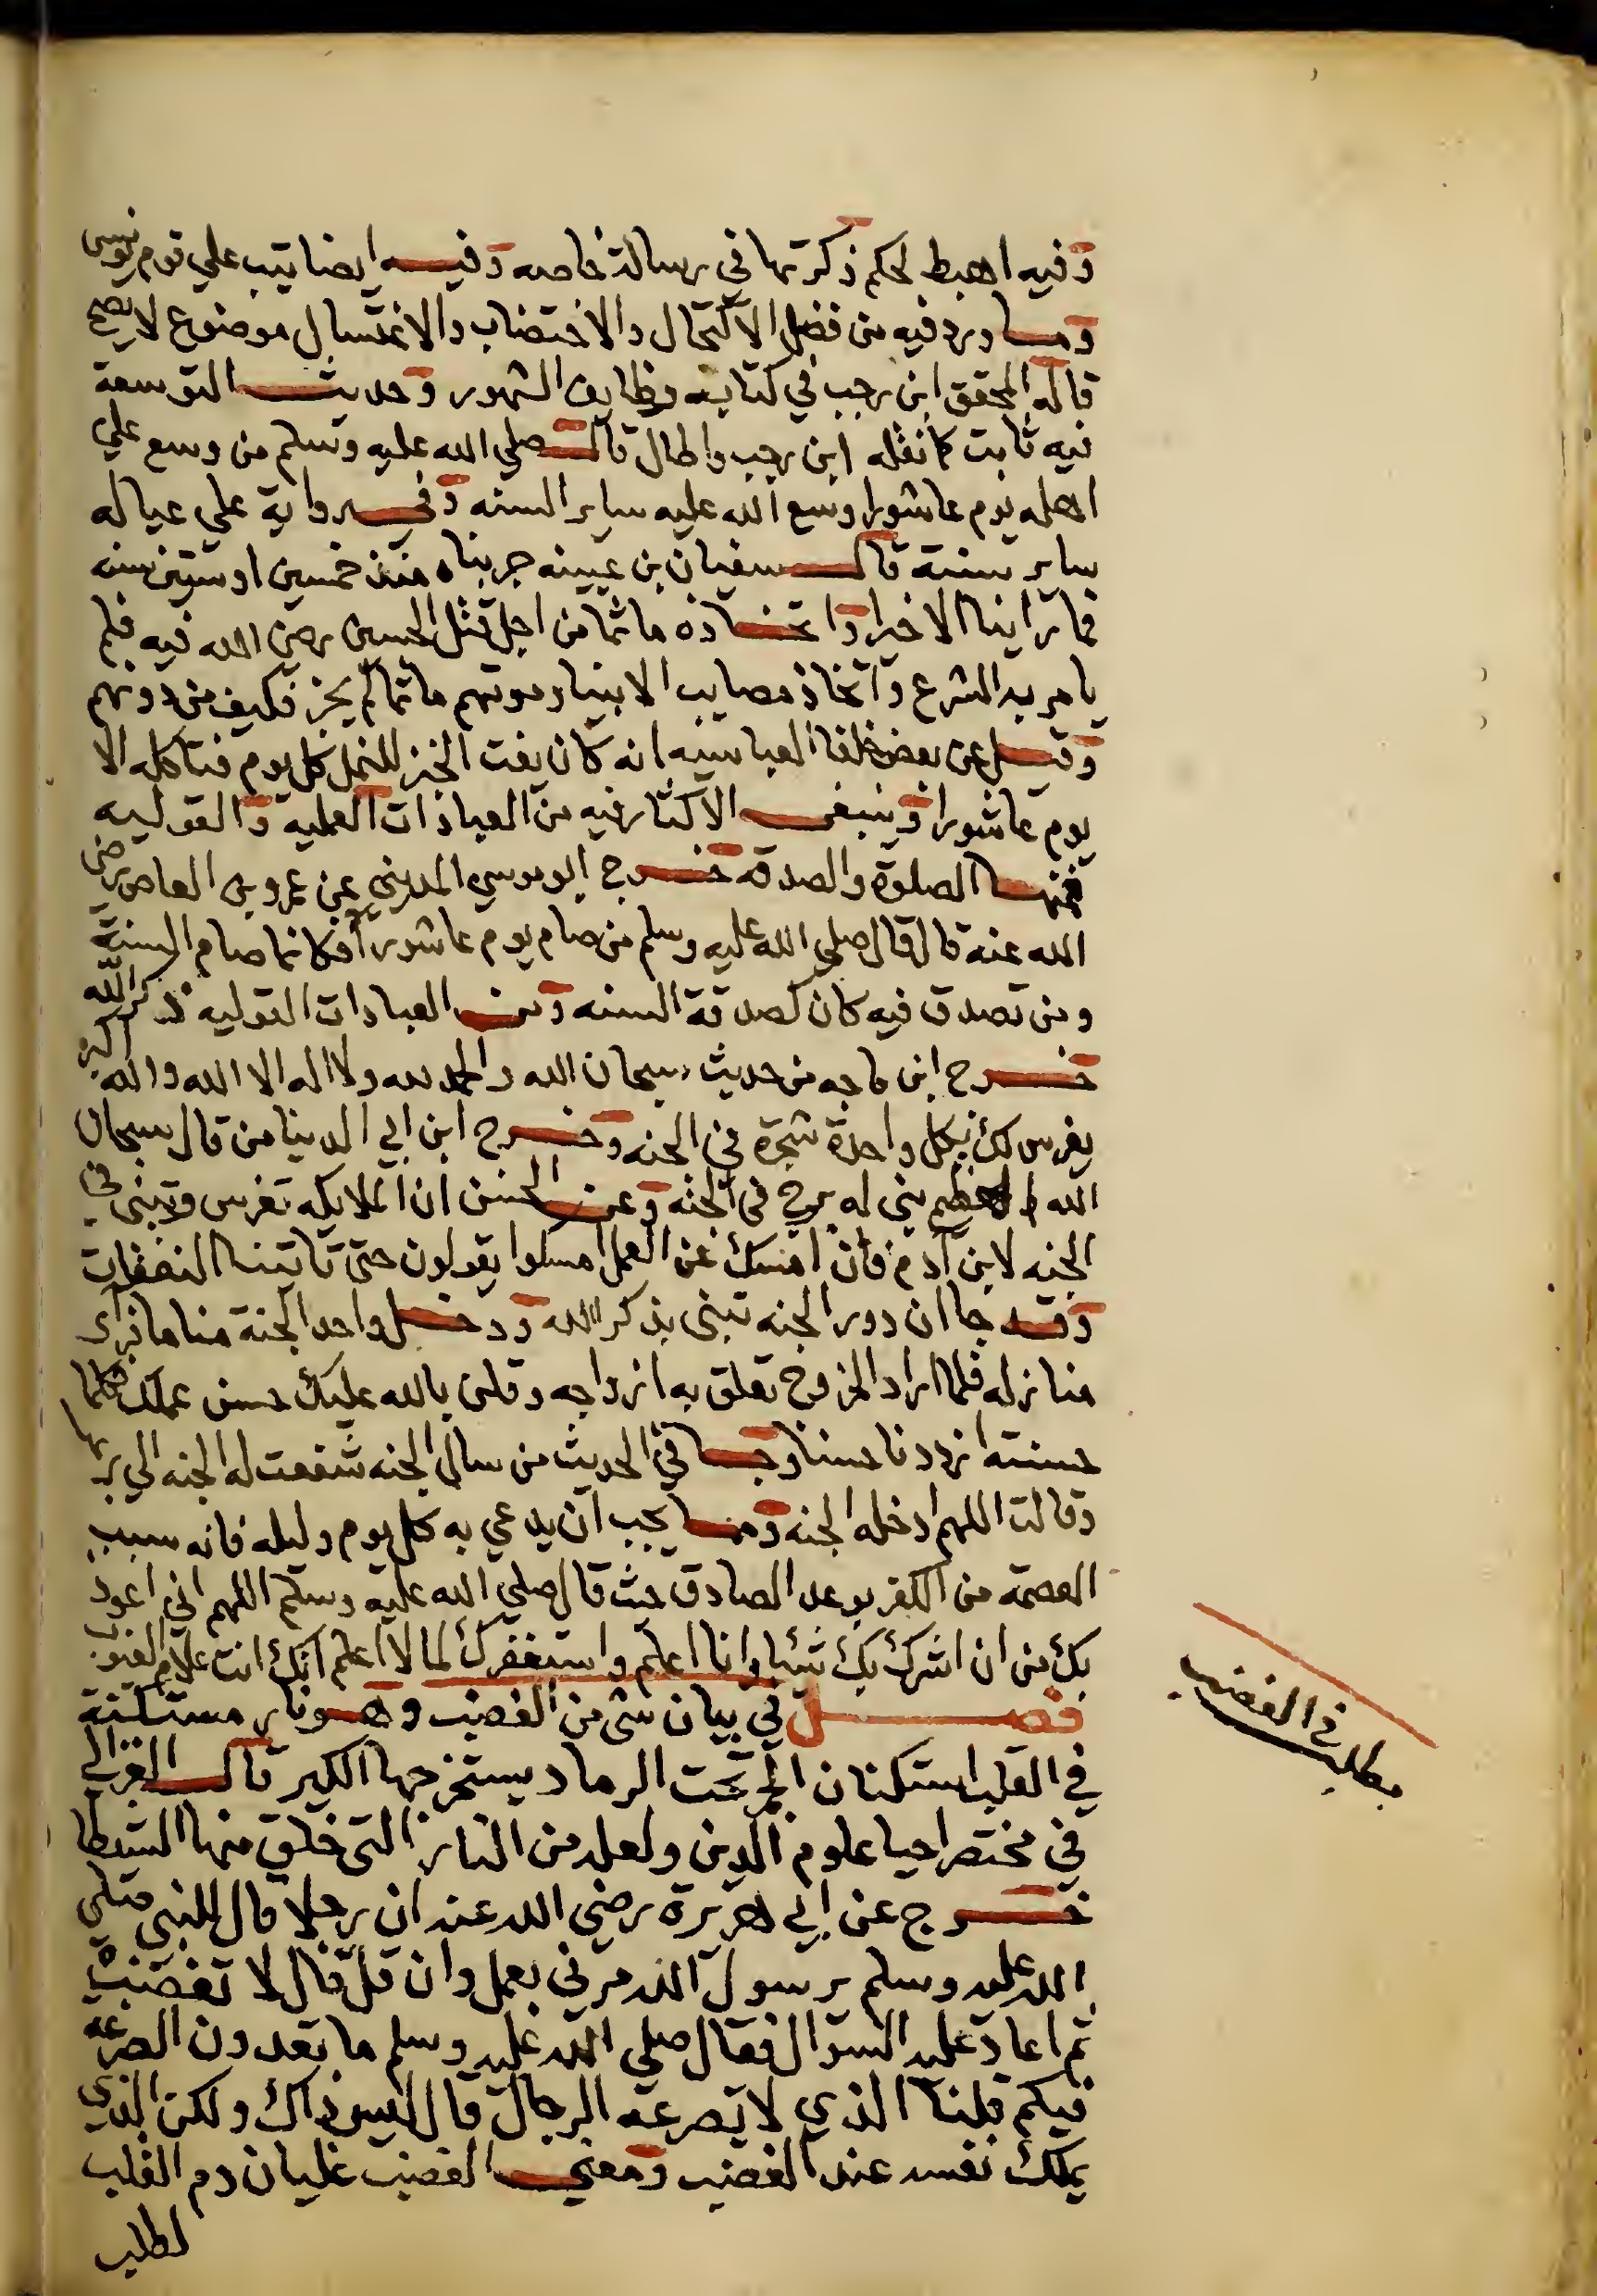 وفيه اهبط لحكم ذكرتها في رسالة خاصه وفيه ايضا تيب علي قوم يونس
وما ورد فيه من فضل الاكتحال والاختضاب والاغتسال موضوع لا يصح
قاله المحقق ابن رجب في كتابه وظايف الشهور وحديث التوسعة
فيه ثابت كما نقله ابن رجب واطال قال صلي الله عليه وسلم من وسع علي
اهله يوم عاشورا وسع الله عليه ساير السنه وفي رواية علي عياله
ساير سنته قال سفيان بن عيينه جربناه منذ خمسين او ستين سنه
فما راينا الا خيرا واتخاذه ماتما من اجل قتل الحسين رضي الله فيه فلم
يامر به الشرع واتخاذ مصايب الانبيا وموتهم ماتما لم يجز فكيف من دونهم
وقيل عن بعض خلفا العباسيه انه كان يفت الخبز للنمل كل يوم فتاكله الا
يوم عاشورا وينبغي الاكثار فيه من العبادات العمليه والقوليه
فمنها الصلوة والصدقه خرج ابو موسي المديني عن عمرو بن العاص رضي
الله عنه قال قال صلي الله عليه وسلم من صام يوم عاشورا فكانما صام السنة
ومن تصدق فيه كان كصدقة السنه ومن العبادات القوليه ذكر الله
خرج ابن ماجه من حديث سبحان الله والحمد لله ولا اله الا الله والله اكبر
يغرس لك بكل واحدة شجرة في الجنه وخرج ابن ابي الدينا من قال سبحان
الله العظيم بني له برج في الجنه وعن الحسن ان الملايكه تغرس وتبني في
الجنه لابن آدم فان امسك عن العمل امسكوا يقولون حتى تاتينا النفقات
وقد جا ان دور الجنه تبنى بذكر الله ودخل واحد الجنة مناما فراى
منازله فلما اراد الخروج تعلق به ازواجه وقلن بالله عليك حسن عملك فكلما
حسنته ازددنا حسنا وجا في الحديث من سال الجنه شفعت له الجنه الي ربها
وقالت اللهم ادخله الجنه ومما يجب ان يدعي به كل يوم وليله فانه سبب
العصمة من الكفر بوعد الصادق حيث قال صلي الله عليه وسلم اللهم اني اعوذ
بك من ان اشرك بك شيئا وانا اعلم واستغفرك لما لا اعلم انك انت علام الغيوب
فصل في بيان شى من الغضب وهو نار مستكنة
في القلب استكنان الجمر تحت الرماد يستخرجها الكبر قال الغزالي
في مختصر احيا علوم الدين ولعله من النار التى خلق منها الشيطا
خرج عن ابي هريرة رضي الله عنه ان رجلا قال للنبي صلي
الله عليه وسلم يرسول الله مرني بعمل وان قل قال لا تغضب
ثم اعاد عليه السوال فقال صلي الله عليه وسلم ما تعدون الصرعه
فيكم قلنا الذي لا تصرعه الرجال قال ليس ذاك ولكن الذي
يملك نفسه عند الغضب ومعني الغضب غليان دم القلب
لطلب
مطلب في الغضب